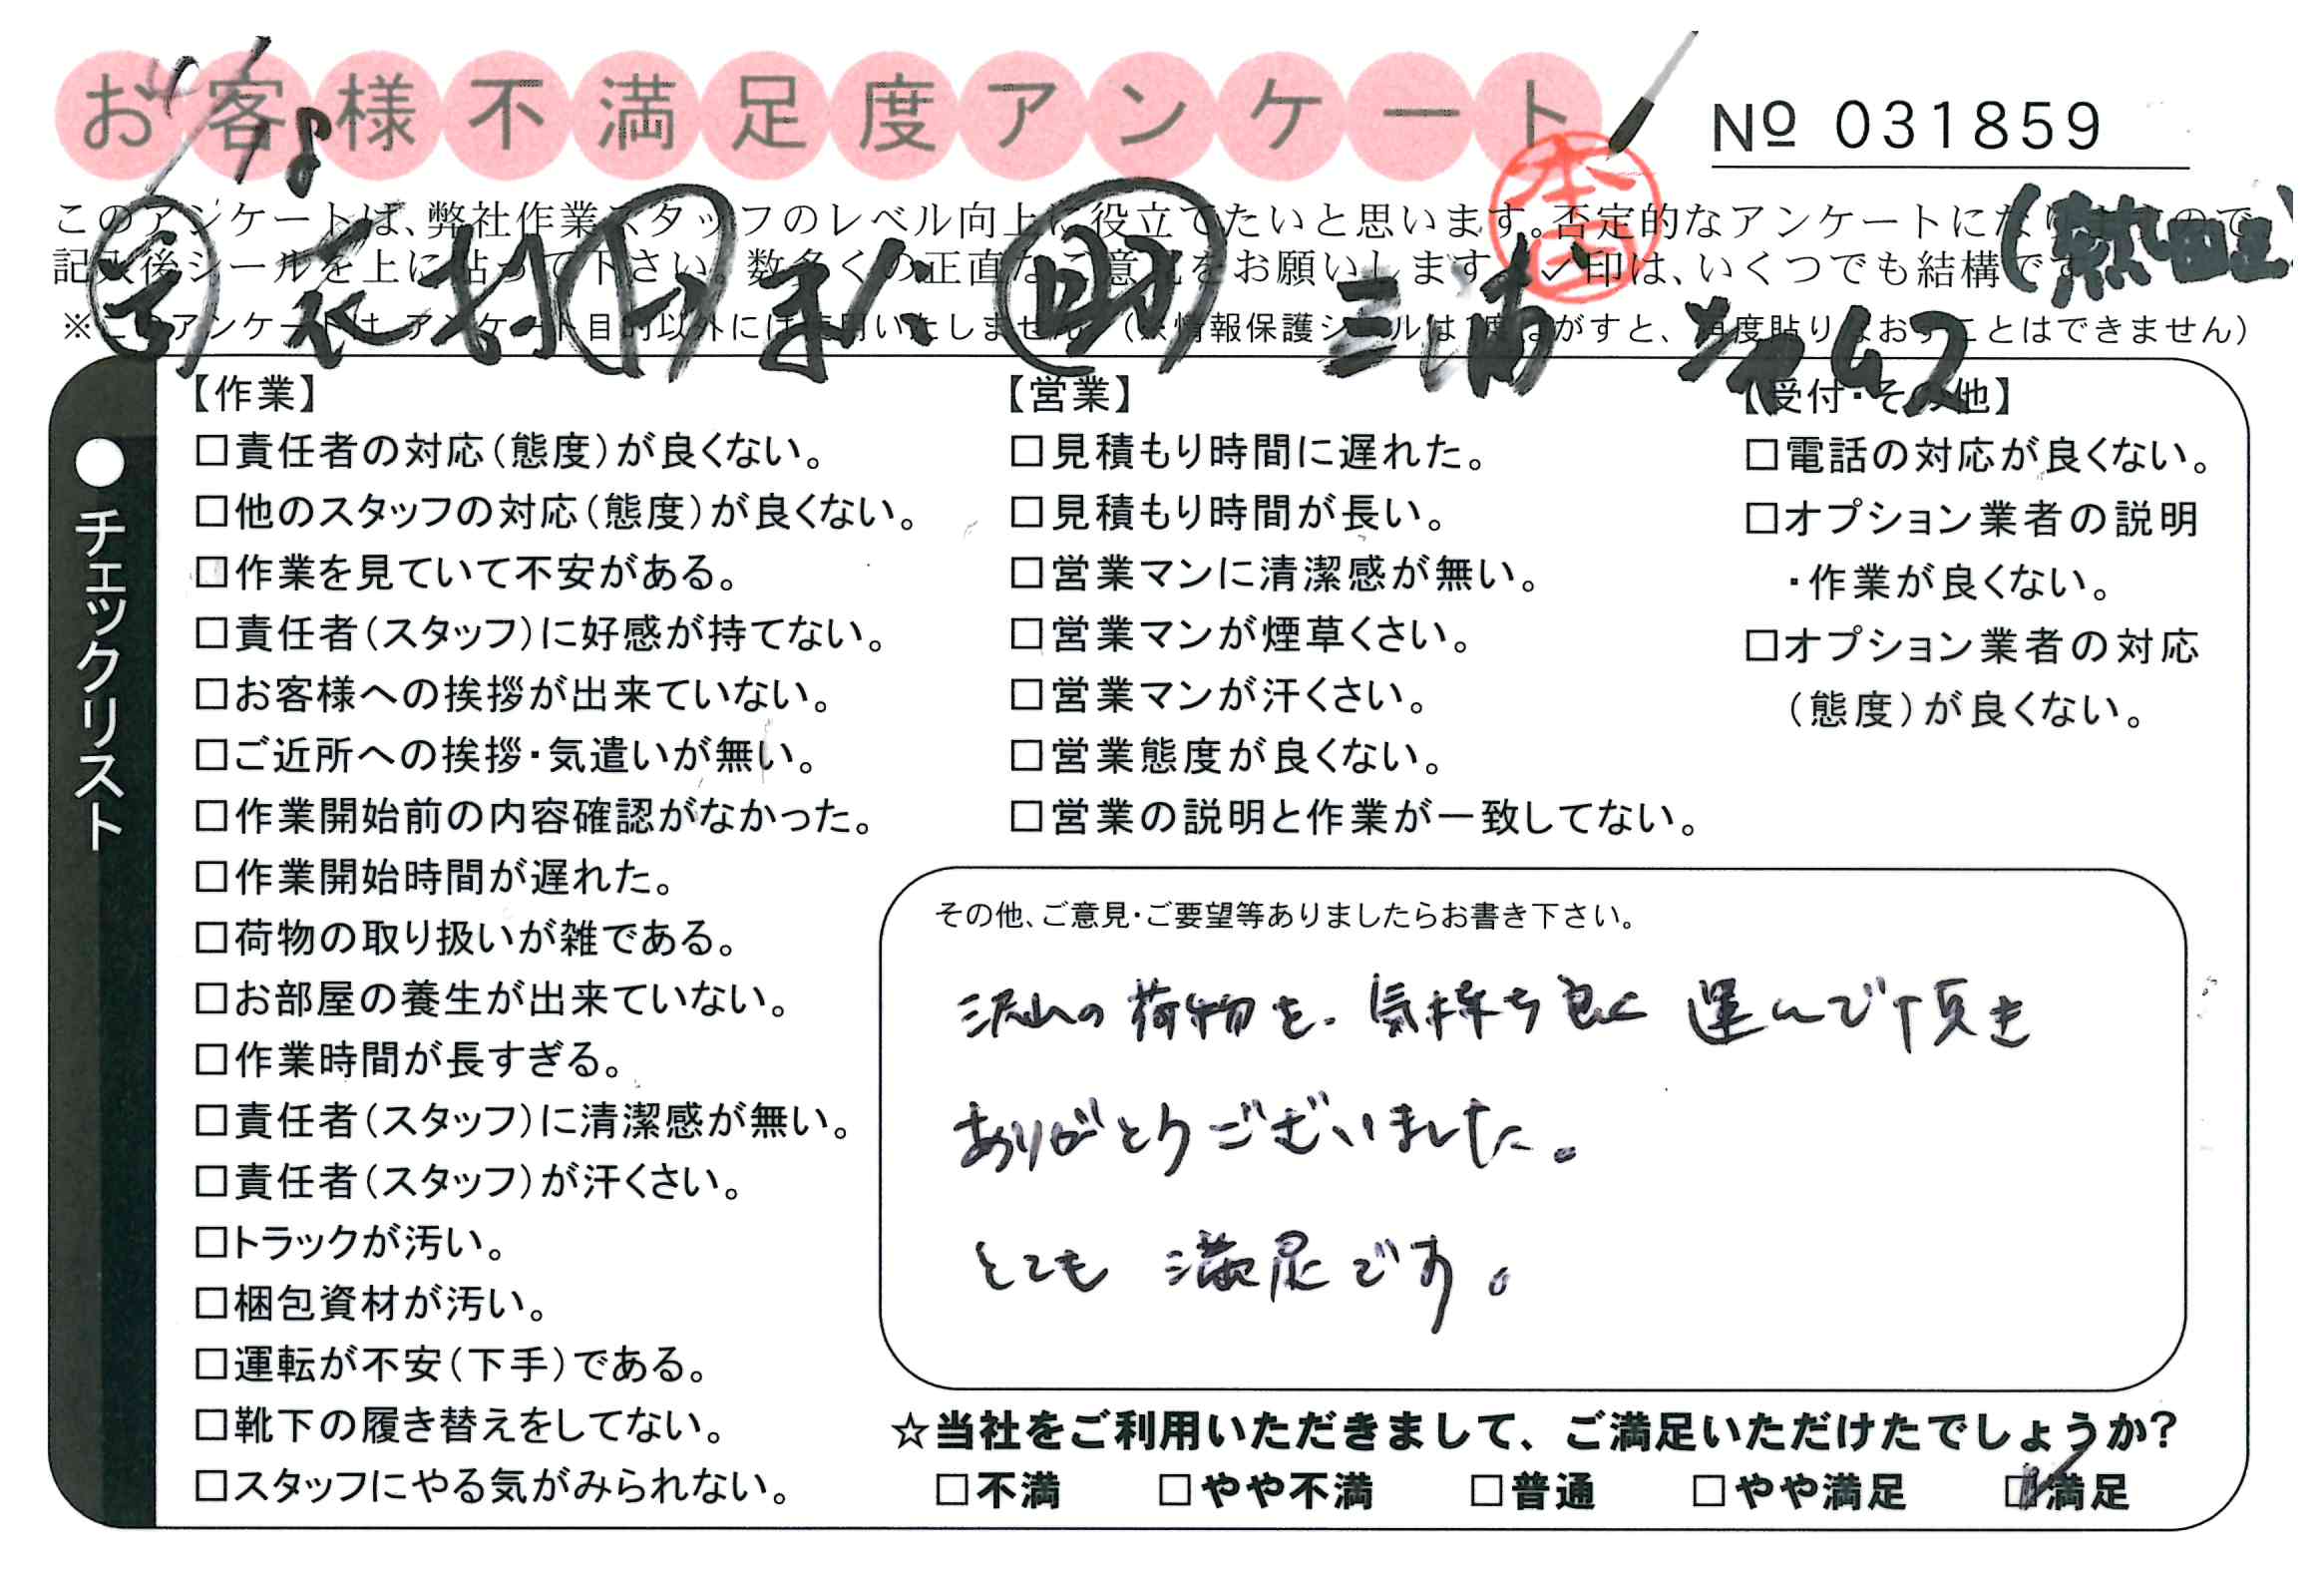 お客様不満足度アンケート
4/18
№ 031859
本田
このアンケートは、弊社作業スタッフのレベル向上に役立てたいと思います。否定的なアンケートになりますので
記入後シールを上に貼って下さい。数多くの正直なご意見をお願いします。レ印は、いくつでも結構です
(熱田)
三浦
※このアンケートは、アンケート目的以外には使用いたしません。(※情報保護シールは1度はがすと、再度貼りなおすことはできません)
●チェックリスト
【作業】
□責任者の対応(態度)が良くない。
□他のスタッフの対応(態度)が良くない。
□作業を見ていて不安がある。
□責任者(スタッフ)に好感が持てない。
□お客様への挨拶が出来ていない。
□ご近所への挨拶・気遣いが無い。
□作業開始前の内容確認がなかった。
□作業開始時間が遅れた。
□荷物の取り扱いが雑である。
□お部屋の養生が出来ていない。
□作業時間が長すぎる。
□責任者(スタッフ)に清潔感が無い。
□責任者(スタッフ)が汗くさい。
□トラックが汚い。
□梱包資材が汚い。
□運転が不安(下手)である。
□靴下の履き替えをしてない。
□スタッフにやる気がみられない。
【営業】
□見積もり時間に遅れた。
□見積もり時間が長い。
□営業マンに清潔感が無い。
□営業マンが煙草くさい。
□営業マンが汗くさい。
□営業態度が良くない。
□営業の説明と作業が一致してない。
【受付・その他】
□電話の対応が良くない。
□オプション業者の説明
・作業が良くない。
□オプション業者の対応
(態度)が良くない。
その他、ご意見・ご要望等ありましたらお書き下さい。
沢山の荷物を、気持ち良く運んで頂き
ありがとうございました。
とても満足です。
☆当社をご利用いただきまして、ご満足いただけたでしょうか?
□不満 □やや不満 □普通 □やや満足 ☑満足